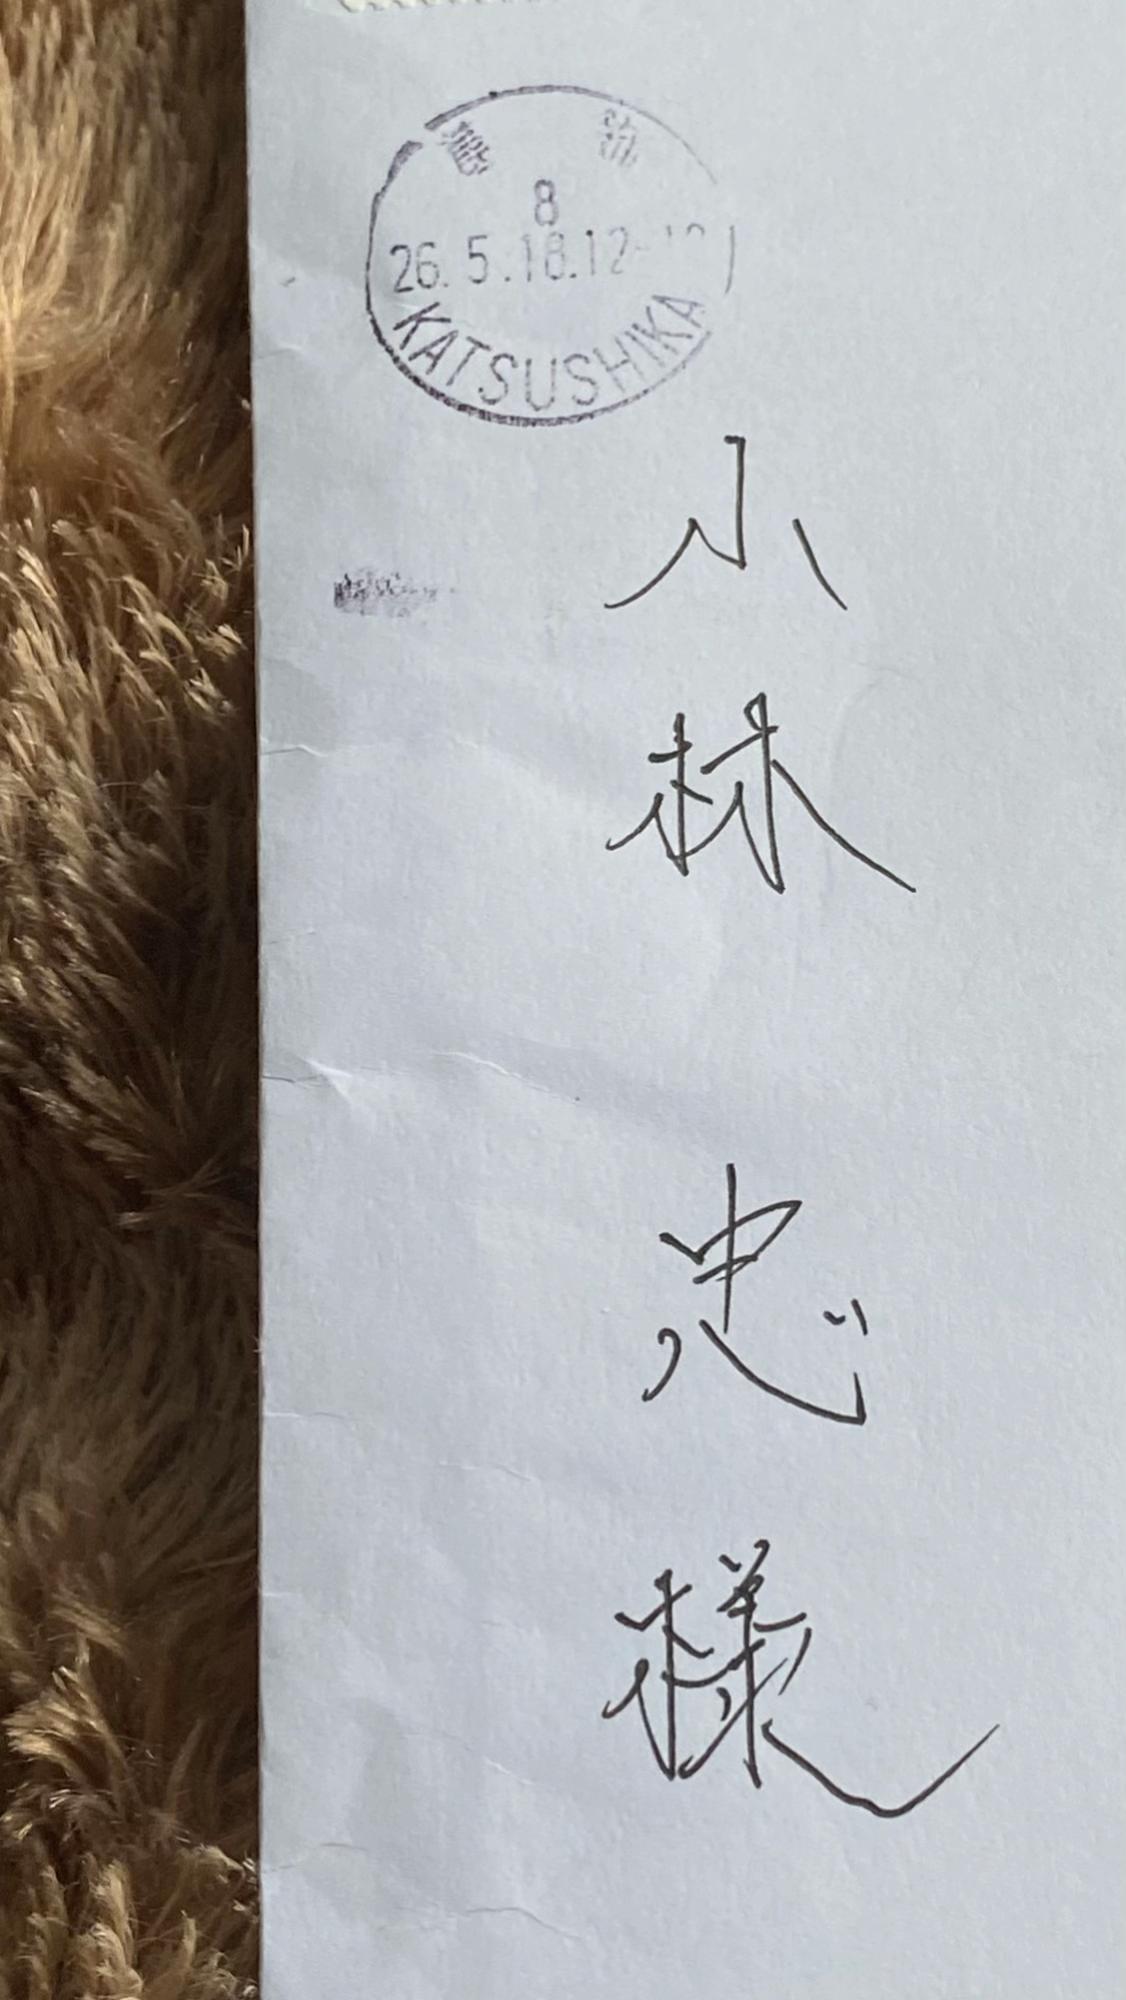 8
26.5.18.12-
KATSUSHIKA
小林 忠 様